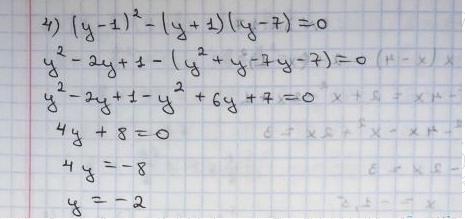 4) (y-1)² - (y+1)(y-7) = 0
y² - 2y + 1 - (y² + y - 7y - 7) = 0
y² - 2y + 1 - y² + 6y + 7 = 0
4y + 8 = 0
4y = -8
y = -2